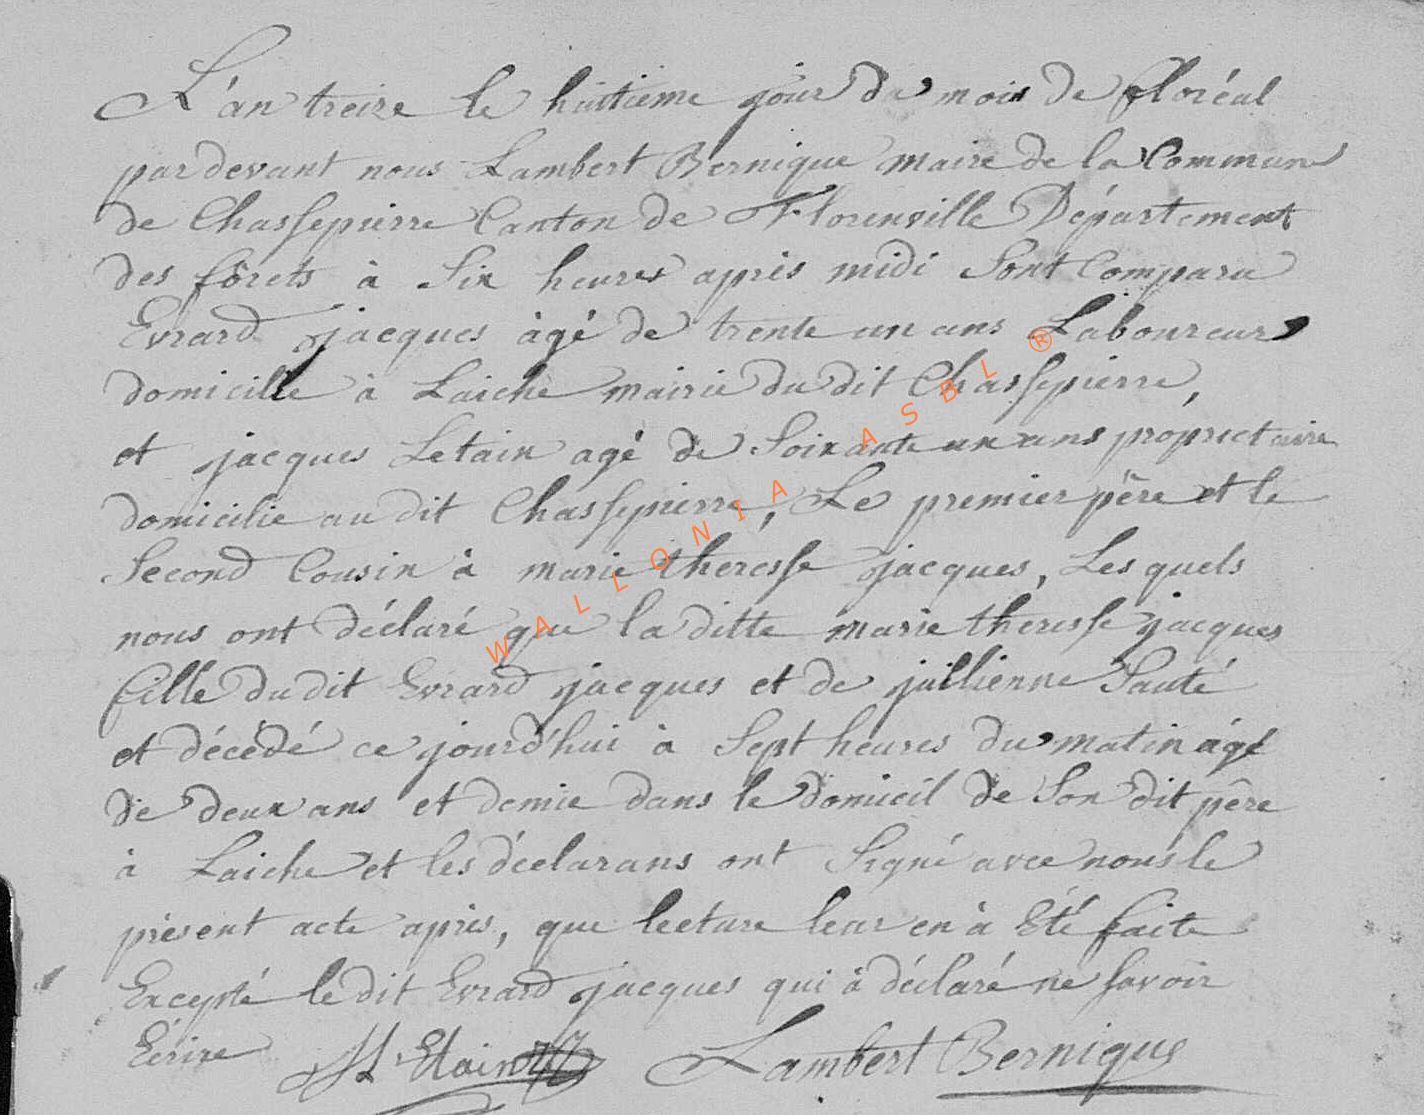 L'an treize le huitieme jour du mois de floréal
par devant nous Lambert Bernique maire de la Commune
de Chassepierre Canton de Florenville Département
des forêts à Six heures après midi Sont Comparu
Evrard jacques àgé de trente un ans Laboureur
domicille à Laiche mairie du dit Chassepierre,
et jacques Letain agé de Soixante un ans proprietaire
domicilie au dit Chassepierre, Le premier père et le
Second Cousin à marie theresse jacques, Les quels
nous ont déclaré que la ditte marie theresse jacques
fille du dit Evrard jacques et de jullienne Sauté
et décédé ce jourd'hui à Sept heures du matin agé
de deux ans et demie dans le domicil de Son dit père
à Laiche et les déclarans ont Signé avec nous le
présent acte après, que lecture leur en à Eté faite
Excepté le dit Evrard jacques qui à déclaré ne savoir
Ecrire Lambert Bernique
WALLONIA ASBL ®